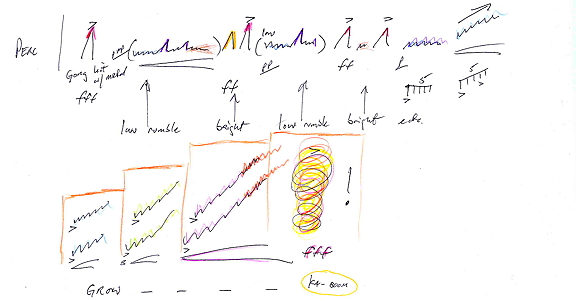 PERC
Gong hit
w/ metal
fff
ppp
low
pp
ff
ff
f
5
5
low rumble
bright
low rumble
bright
etc.
!
fff
GROW — — — —
KA-BOOM